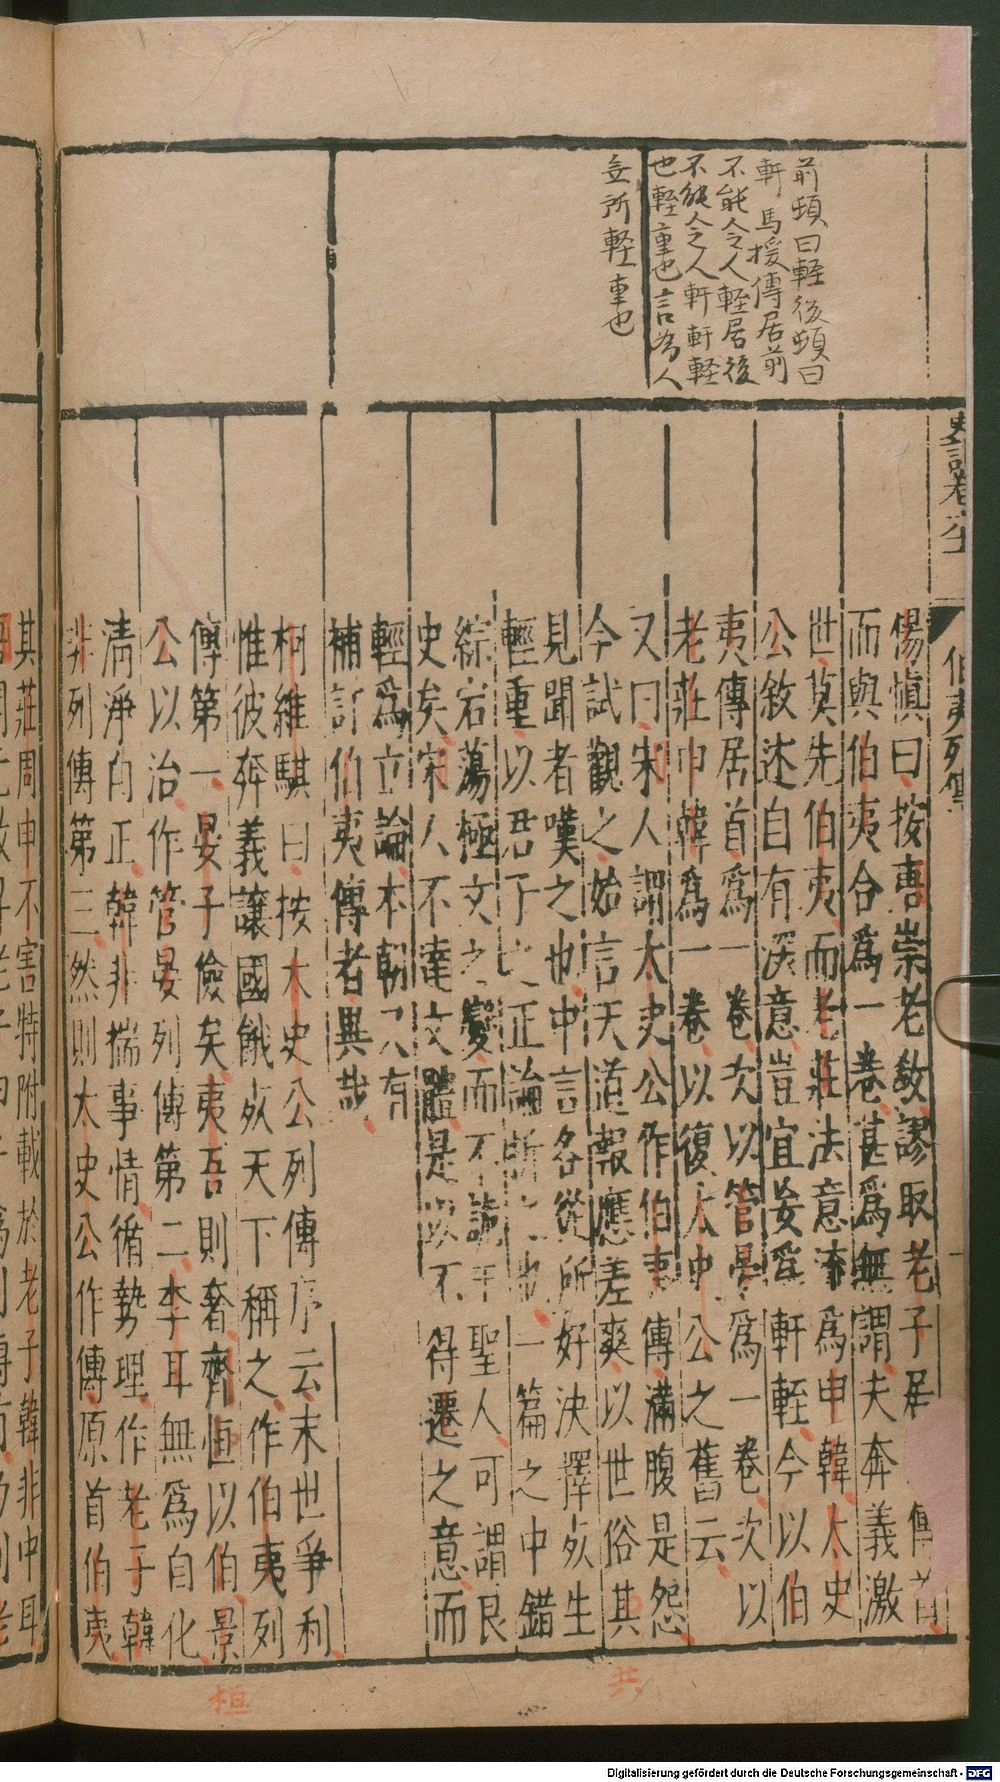 前頓曰輊後頓曰
軒馬援傳居前
不能令人輊居後
不能令人軒軒輊
也輕重也言為人
無所輕重也
史記卷六十一
伯夷列傳
楊慎曰按唐崇老教謬取老子居傳首
而與伯夷合爲一卷甚爲無謂夫奔義激
世莫先伯夷而老莊法意流爲申韓太史
公敘述自有深意豈宜妄爲軒輊今以伯
夷傳居首爲一卷次以管晏爲一卷次以
老莊申韓爲一卷以復太史公之舊云
又曰宋人謂太史公作伯夷傳滿腹是怨
今試觀之始言天道報應差爽以世俗其
見聞者嘆之也中言各從所好決擇死生
輕重以君子之正論所之也一篇之中錯
綜宕蕩極文之變而不詭于聖人可謂良
史矣宋人不達文體是以不得遷之意而
輕爲立論本朝又有
補訂伯夷傳者異哉
柯維騏曰按太史公列傳序云末世爭利
惟彼奔義讓國餓死天下稱之作伯夷列
傳第一晏子儉矣夷吾則奢齊桓以伯景
公以治作管晏列傳第二李耳無爲自化
清淨自正韓非揣事情循勢理作老子韓
非列傳第三然則太史公作傳原首伯夷
其莊周申不害特附載於老子韓非中耳
共
桓
Digitalisierung gefördert durch die Deutsche Forschungsgemeinschaft - DFG